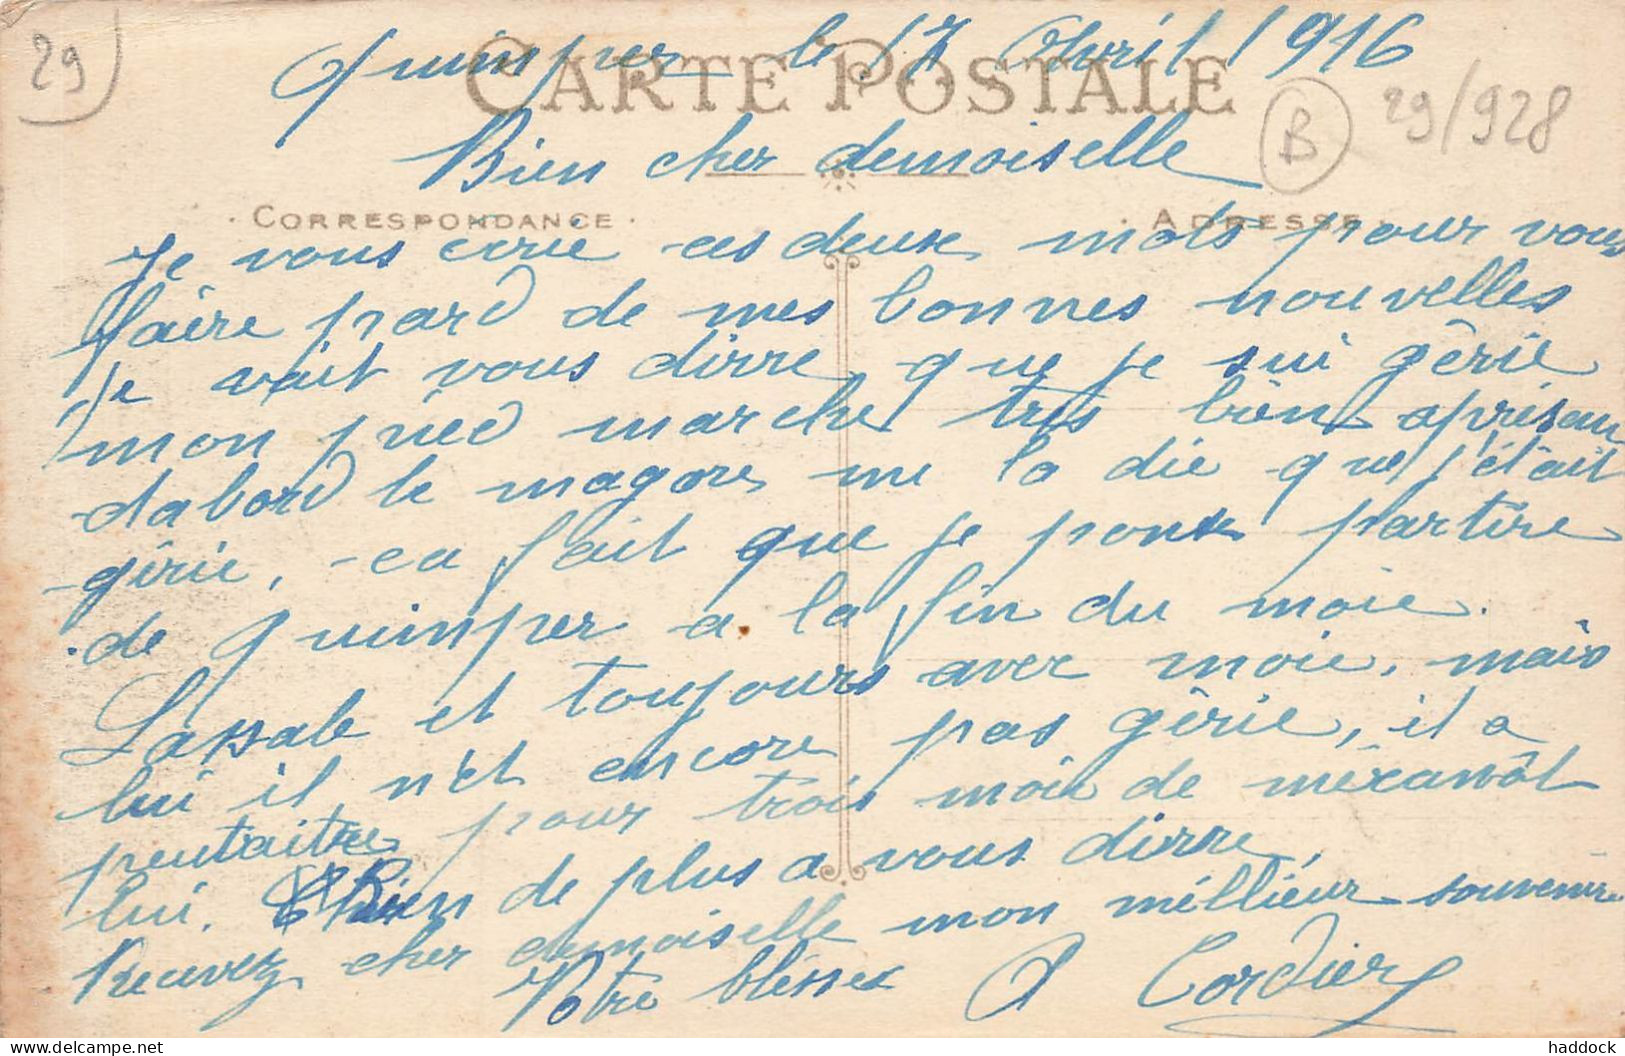 29
CARTE POSTALE
Quimper le 17 Avril 1916
B 29/928
Bien cher demoiselle
CORRESPONDANCE ADRESSE
Je vous ecrie ces deux mots pour vous
faire pard de mes bonnes nouvelles
Je vait vous dirre que je sui gêrie
mon piied marche tres bien apris
dabord le magore me la die que j'était
gêrie, ca fait que je poux partire
de quimper a la fin du moie.
Lassale et toujours avec moie, mais
lui il n'et encore pas gêrie, il a
peutaitre pour trois moie de mêcanôt
lui. Rien de plus a vous dirre
Recevez cher demoiselle mon méllieur souvenire
Votre blesser A Cordier
haddock